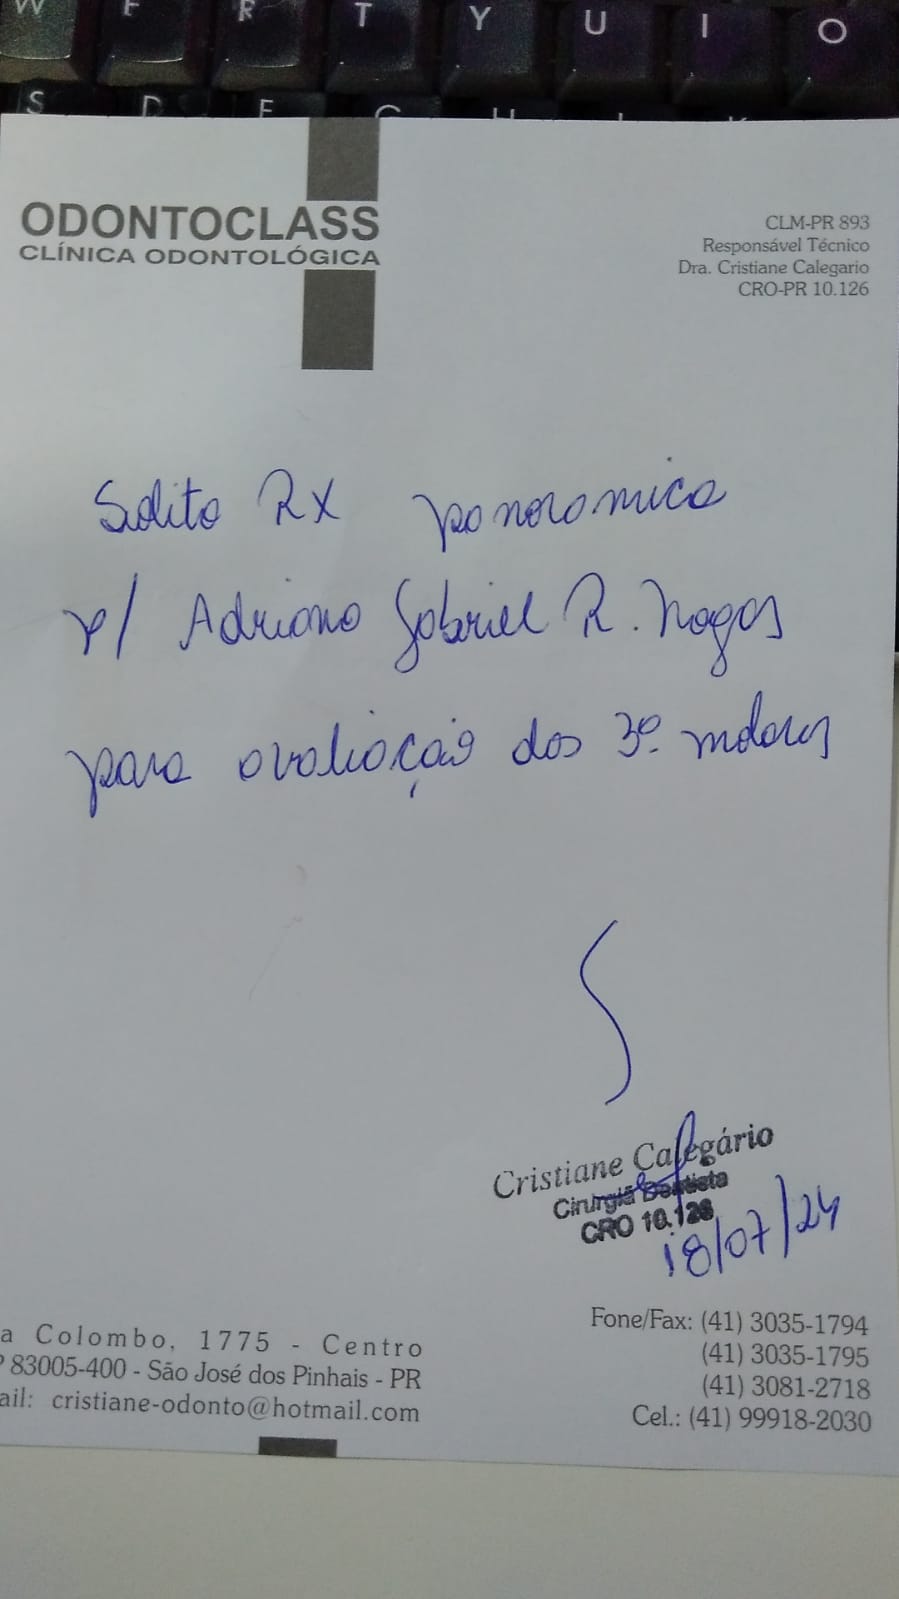 W E R T Y U I O
S D F G H J K
ODONTOCLASS
CLÍNICA ODONTOLÓGICA
CLM-PR 893
Responsável Técnico
Dra. Cristiane Calegario
CRO-PR 10.126
Solito RX panoromica
p/ Adriano Gabriel R. Nogas
para avaliação dos 3º molares
Cristiane Calegário
Cirurgiã Dentista
CRO 10.126
18/07/24
a Colombo, 1775 - Centro
P 83005-400 - São José dos Pinhais - PR
ail: cristiane-odonto@hotmail.com
Fone/Fax: (41) 3035-1794
(41) 3035-1795
(41) 3081-2718
Cel.: (41) 99918-2030